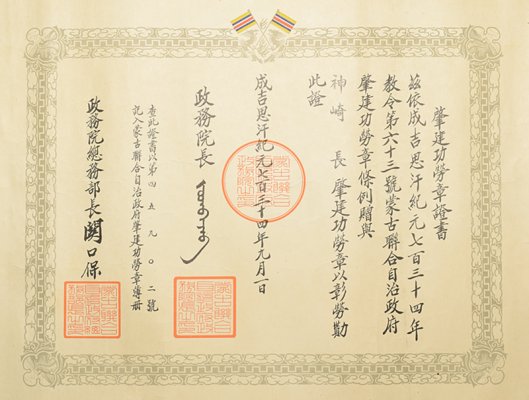 肇建功勞章證書
茲依成吉思汗紀元七百三十四年
教令第六十三號蒙古聯合自治政府
肇建功勞章條例贈與
神崎　長　肇建功勞章以彰勞勩
此證
成吉思汗紀元七百三十四年元月一日
政務院長
查此證書以第四五九〇二號
記入蒙古聯合自治政府肇建功勞章簿册
政務院總務部長關口保